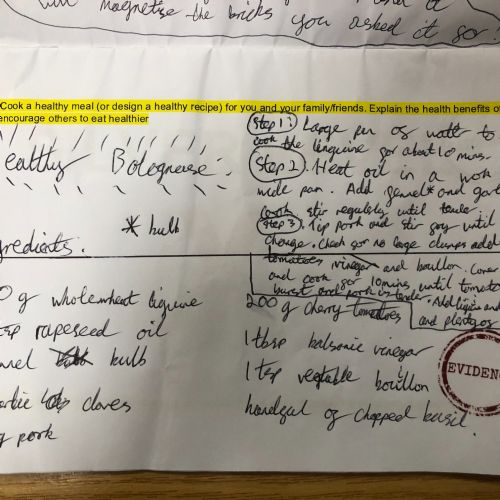 magnetise the bricks you asked it for!
Cook a healthy meal (or design a healthy recipe) for you and your family/friends. Explain the health benefits of
encourage others to eat healthier
ealthy Bolognese:
* bulb
gredients.
0g wholewheat liguine
sp rapeseed oil
nel bulb
cloves
g pork
Step 1: Large pan of water to
cook the linguine for about 10 mins.
Step 2. Heat oil in a work
wide pan. Add fennel* and gar
cook stir regularly until tender
Step 3. Tip pork and stir fry until
change. Check for no large clumps add
tomatoes vinegar and bouillon. Cover
and cook for 10mins, until tomato
burst and pork is tender. Add liguine and
and plenty of
200 g cherry tomatoes
1 tbsp balsamic vinegar
1 tsp vegtable bouillon
handful of chopped basil.
EVIDEN